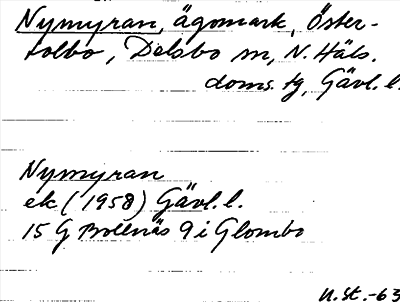 Nymyran, ägomark, Öster-
tolbo, Delsbo sn, N. Häls.
doms. tg, Gävl. l.
Nymyran
ek (1958) Gävl. l.
15 G Bollnäs 9 i Glombo
N. St. -63